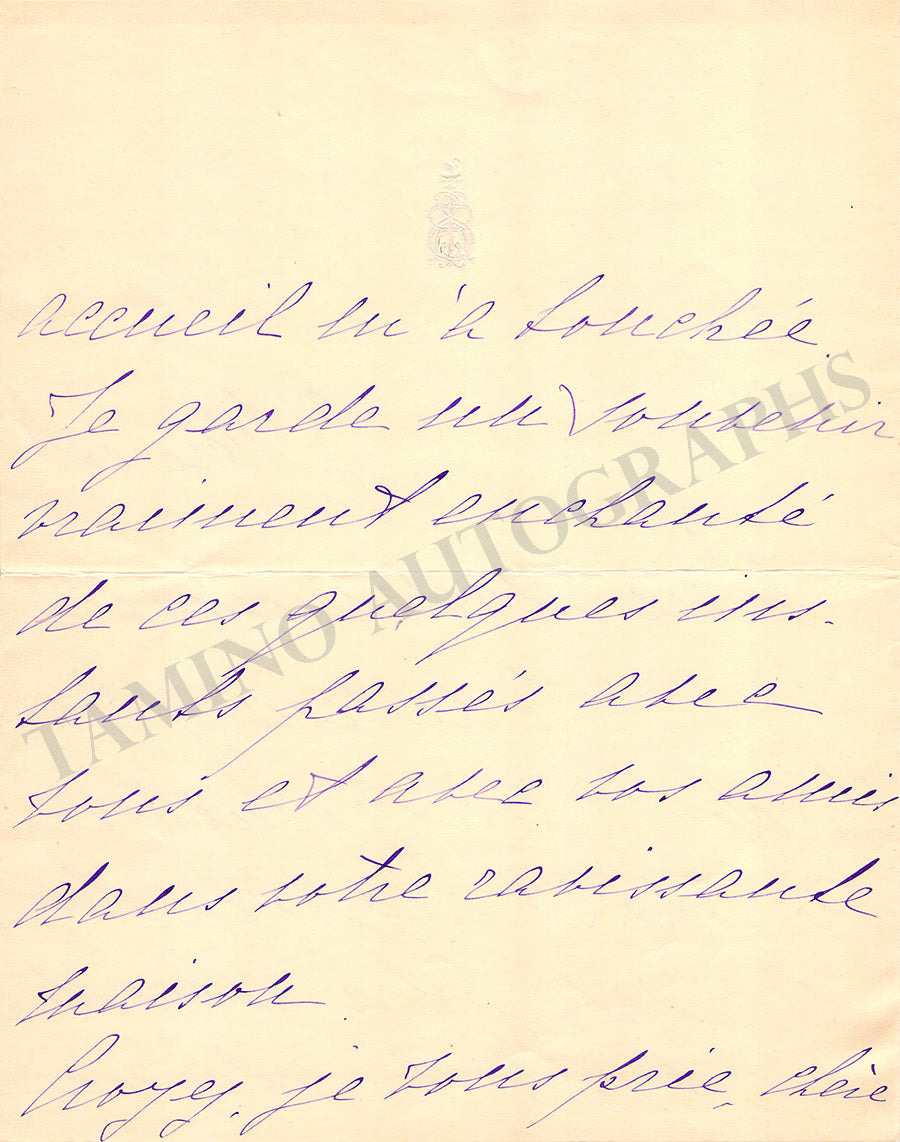 accueil m'a touchée.
Je garde un souvenir
vraiment enchanté
de ces quelques ins-
tants passés avec
vous et avec vos amis
dans votre ravissante
maison.
Croyez, je vous prie, chère
TAMINO AUTOGRAPHS